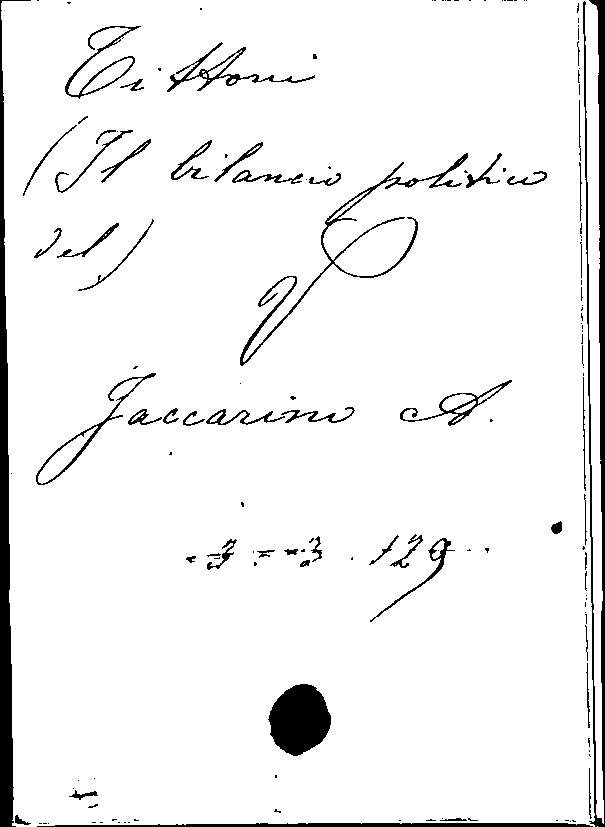 Tittoni
(Il bilancio politico
del)
V
Jaccarino A.
3 = 3 129